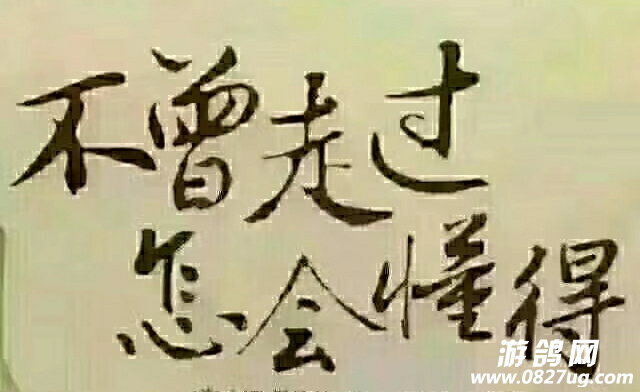 不曾走过
怎会懂得
游鸽网
www.0827ug.com